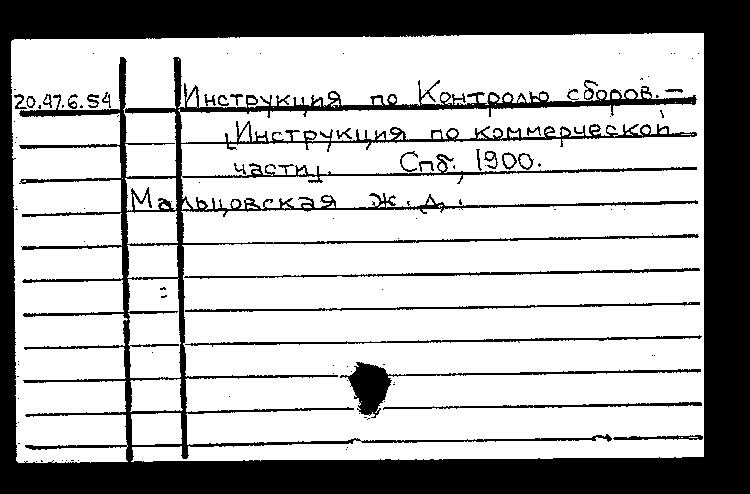 20.47.6.54 Инструкция по Контролю сборов. –
[Инструкция по коммерческой
части]. Спб., 1900.
Мальцовская ж. д.